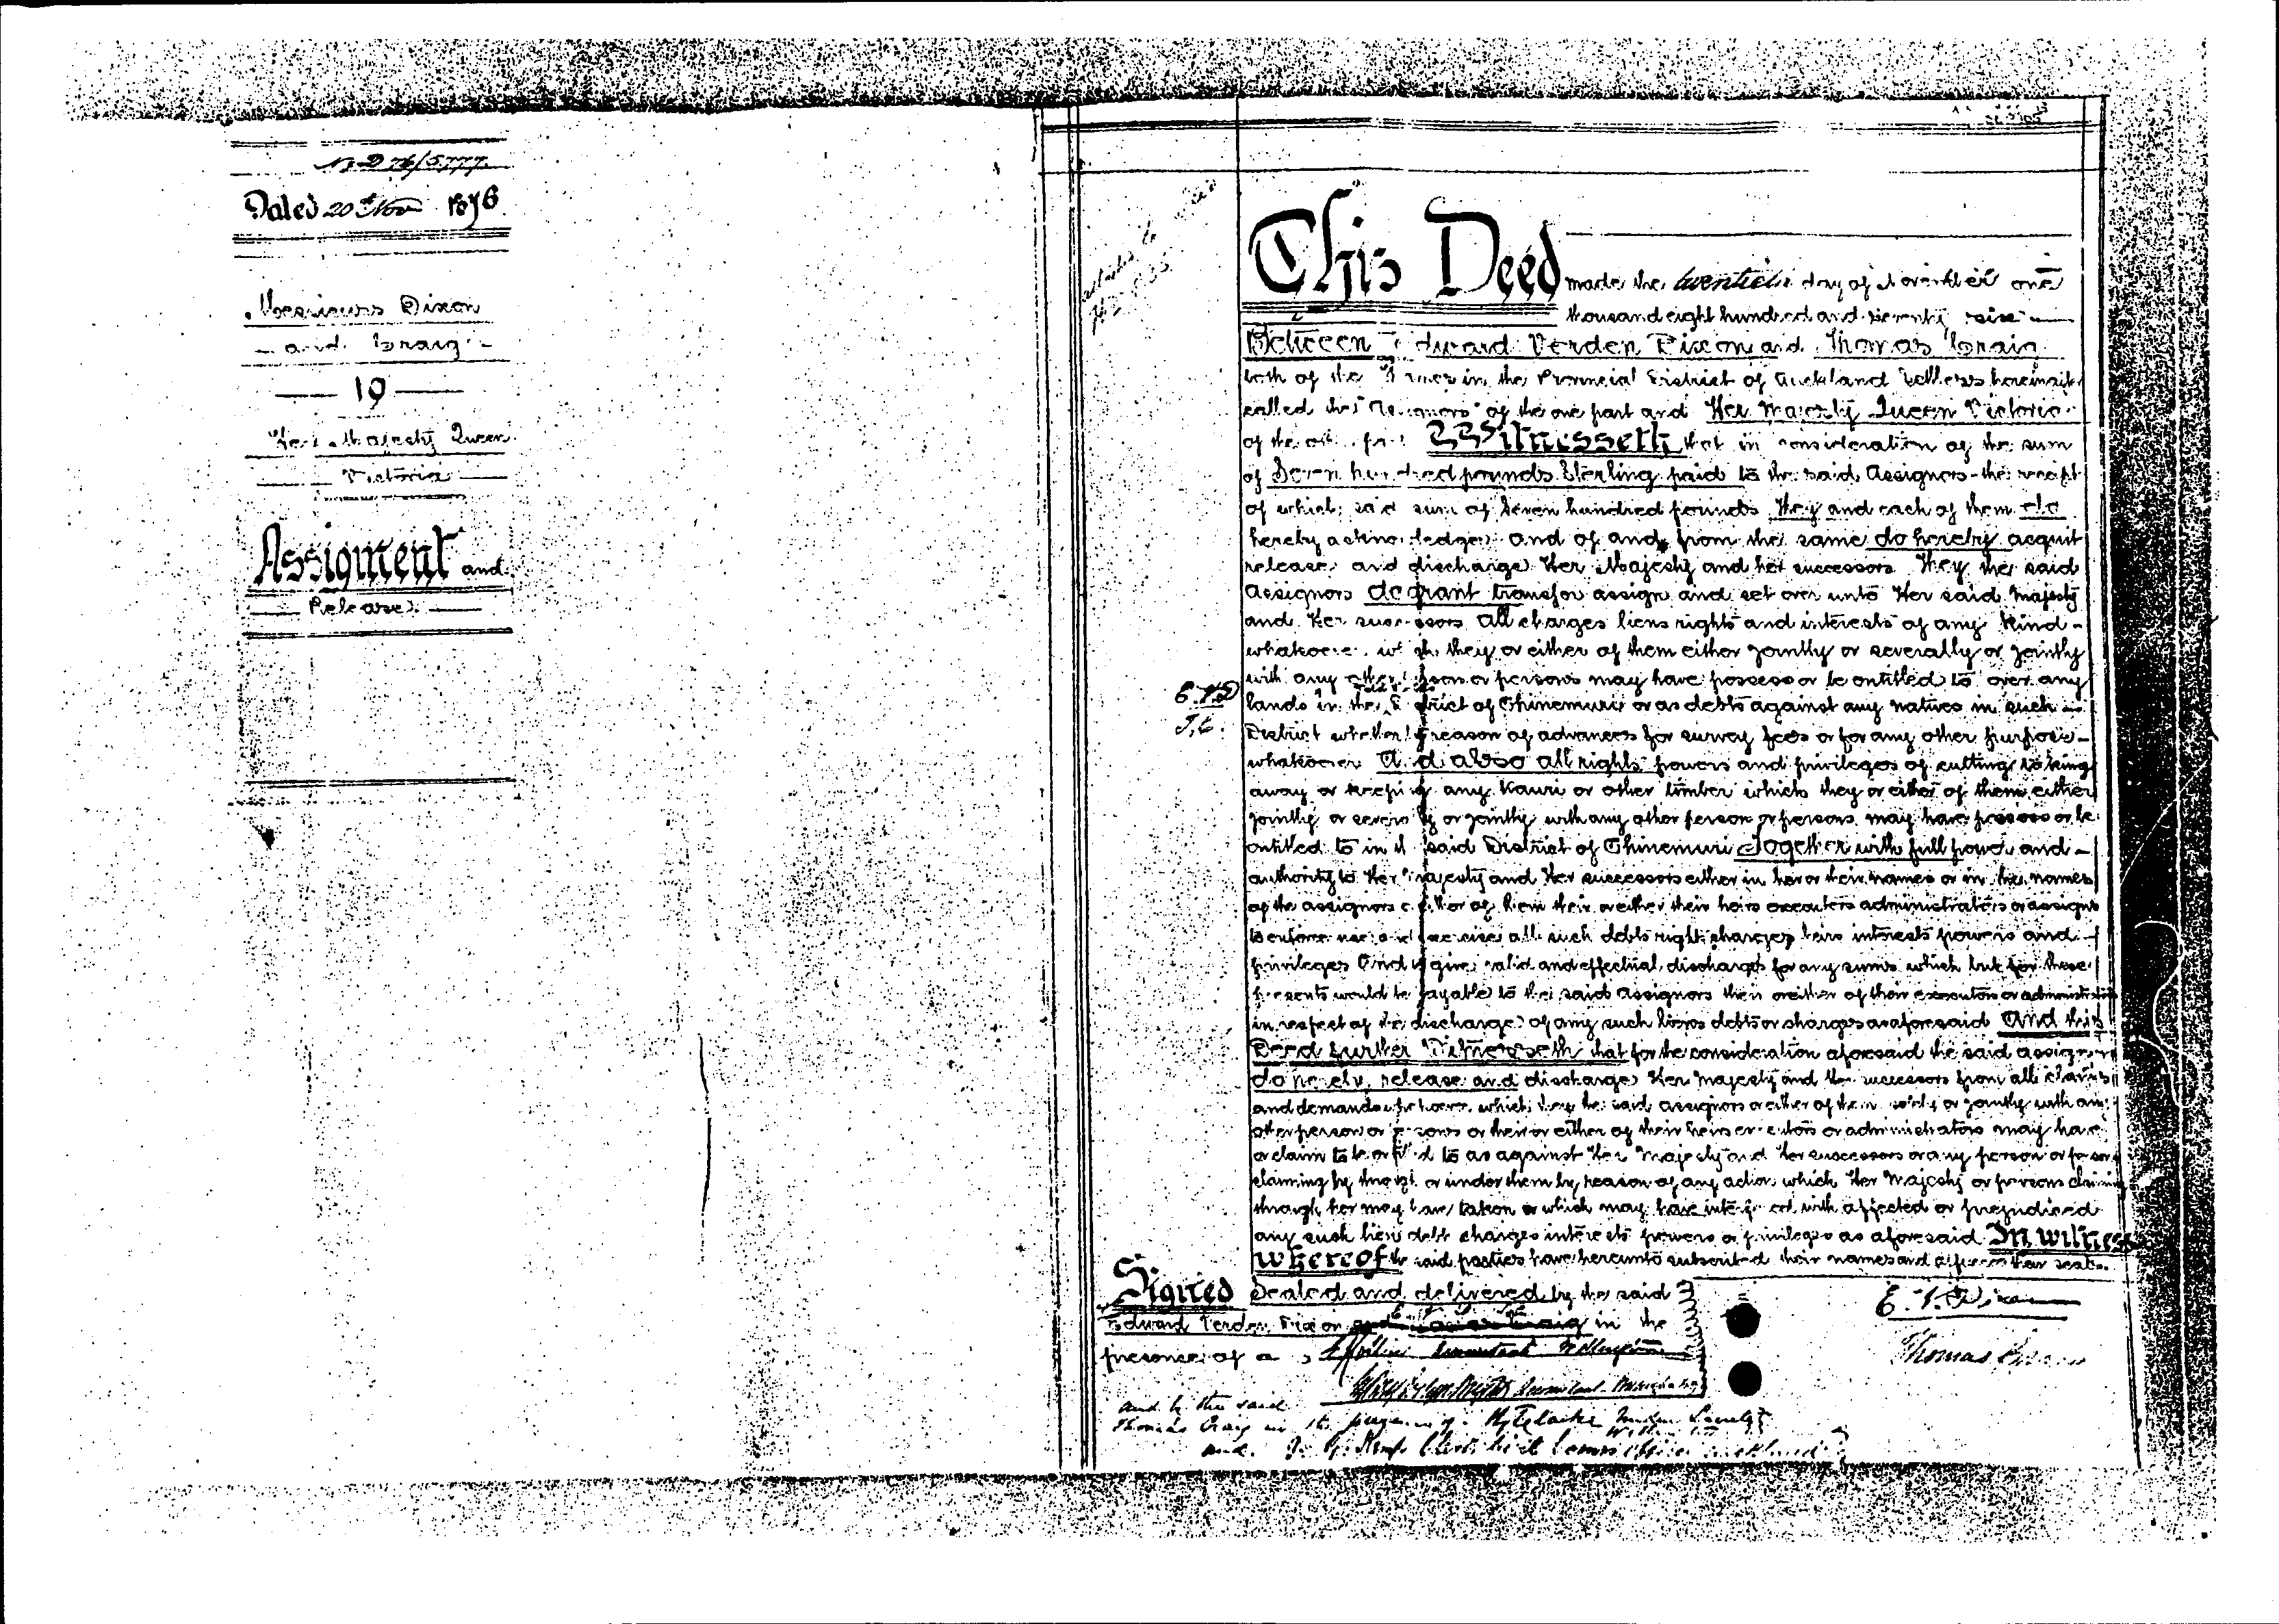 N.D 76/5777.
Dated 20th Nov 1876.
Messieurs Dixon
and Craig
to
Her Majesty Queen
Victoria
Assigment and
Release
This Deed made the twentieth day of November one
thousand eight hundred and seventy six
Between Edward Verden Dixon and Thomas Craig
both of the Thames in the Provincial District of Auckland Settlers hereinafter
called the "Assignors" of the one part and Her Majesty Queen Victoria
of the other part Witnesseth that in consideration of the sum
of Seven hundred pounds Sterling paid to the said Assignors the receipt
of which said sum of Seven hundred pounds they and each of them do
hereby acknowledge and of and from the same do hereby acquit
release and discharge Her Majesty and her successors They the said
Assignors do grant transfer assign and set over unto Her said Majesty
and Her successors All charges liens rights and interests of any kind
whatsoever which they or either of them either jointly or severally or jointly
with any other person or persons may have possess or be entitled to over any
E.V.D lands in the District of Ohinemuri or as debts against any natives in such
T.C. District whether by reason of advances for survey fees or for any other purpose
whatsoever And also all rights powers and privileges of cutting taking
away or keeping any Kauri or other timber which they or either of them either
jointly or severally or jointly with any other person or persons may have possess or be
entitled to in the said District of Ohinemuri Together with full power and
authority to Her Majesty and Her successors either in her or their names or in the names
of the assignors or either of them their or either their heirs executors administrators or assigns
to enforce use and exercise all such debts right charges liens interests powers and
privileges And to give valid and effectual discharges for any sums which but for these
presents would be payable to the said assignors then or either of their executors or administrators
in respect of the discharge of any such liens debts or charges as aforesaid And this
Deed further Witnesseth that for the consideration aforesaid the said assignors
do hereby release and discharge Her Majesty and Her successors from all claims
and demands whatsoever which they the said assignors or either of them solely or jointly with any
other person or persons or their or either of their heirs executors or administrators may have
or claim to be entitled to as against Her Majesty and Her successors or any person or persons
claiming by through or under them by reason of any action which Her Majesty or persons claiming
through her may have taken or which may have interfered with affected or prejudiced
any such liens debts charges interests powers or privileges as aforesaid In witness
whereof the said parties have hereunto subscribed their names and affixed their seals.
Signed Sealed and delivered by the said
Edward Verden Dixon and Thomas Craig in the
presence of
E. V. Dixon
Thomas Craig
and by the said
Thomas Craig in the presence of
and